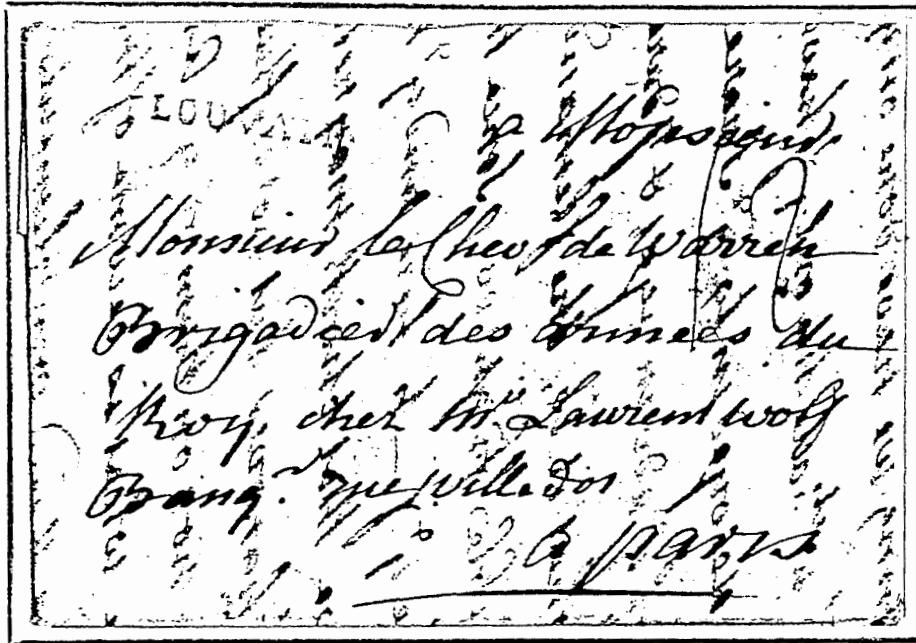 LOUVAIN
a Monsieur
Monsieur le Chev. de Warren
Brigadier des Armées du
Roy, chez Mr. Laurent Wolf
Banqr. rue Villedor
a paris